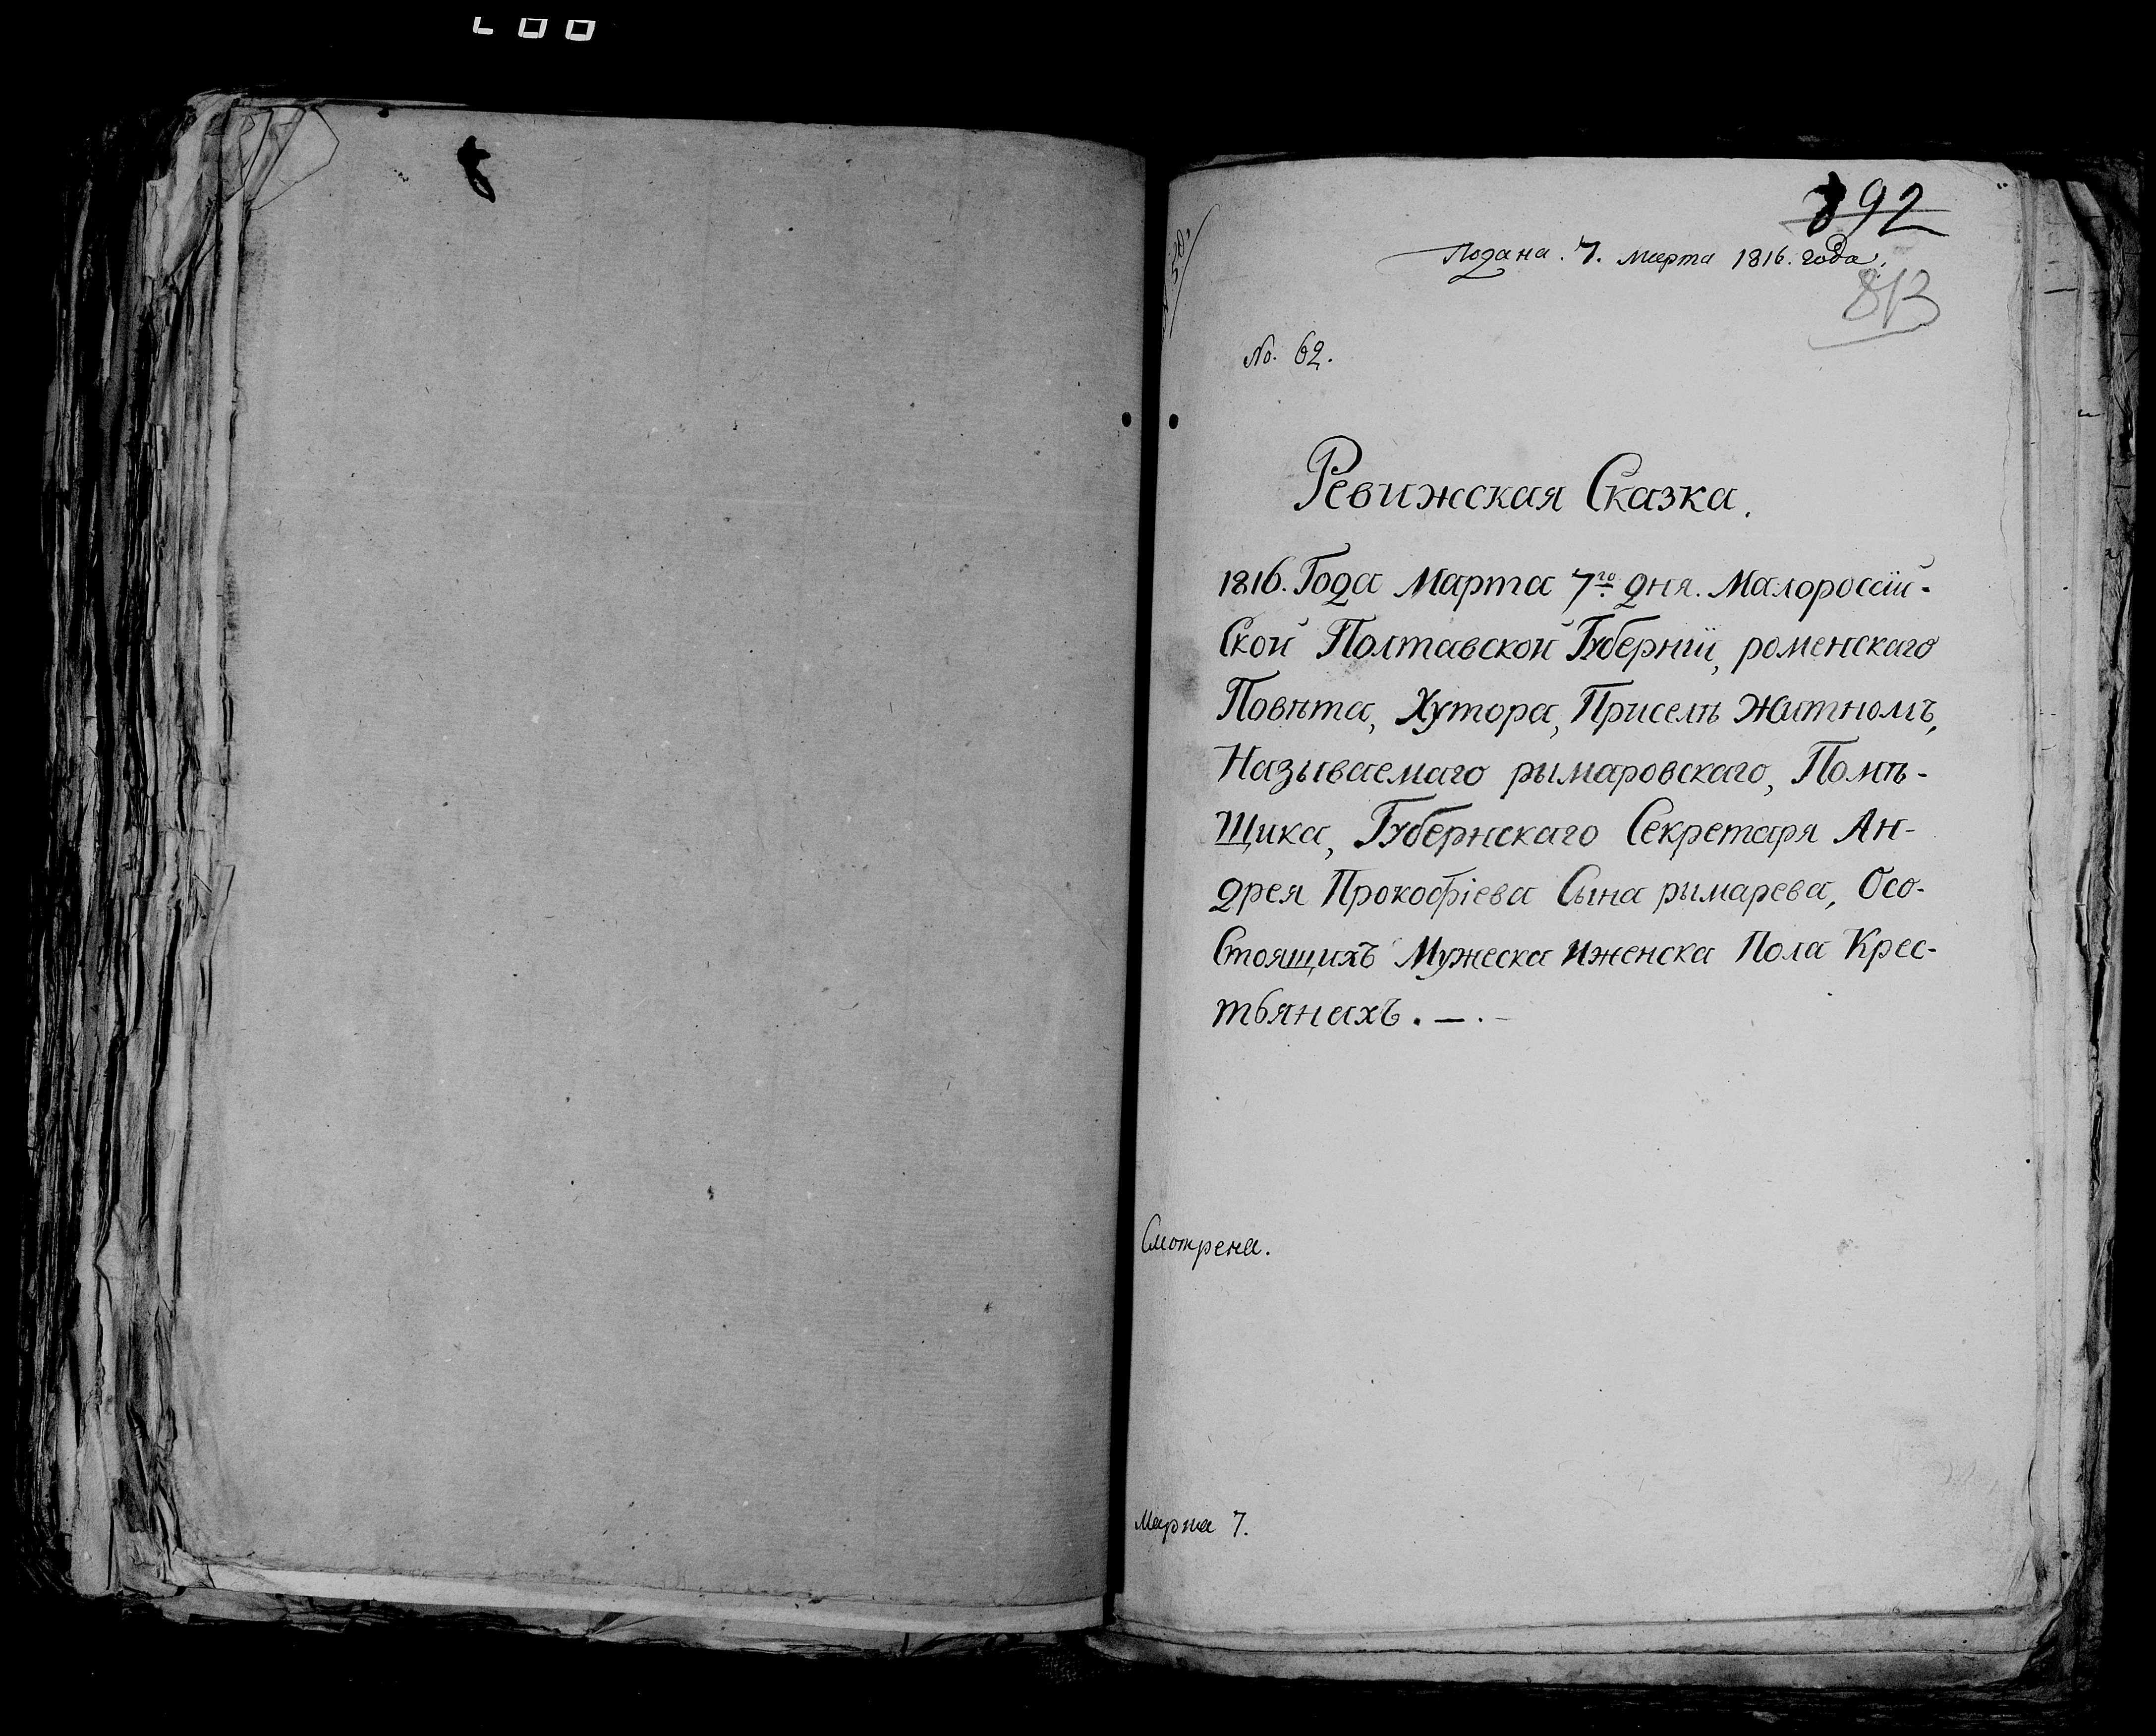 892
Подана. 7. Марта 1816. года.
813
No. 62.
Ревижская Сказка.
1816. Года Марта 7го дня. Малороссїй-
Ской Полтавской Губернїи, роменскаго
Повѣта, Хутора, Приселѣ Житномъ,
Называемаго рымаровскаго, Помѣ-
Щика, Губернскаго Секретаря Ан-
дрея Прокофіева Сына рымарева, Осо-
Стоящихъ Мужеска Иженска Пола Крес-
тьянахъ. — . —
Смотрена.
Марта 7.